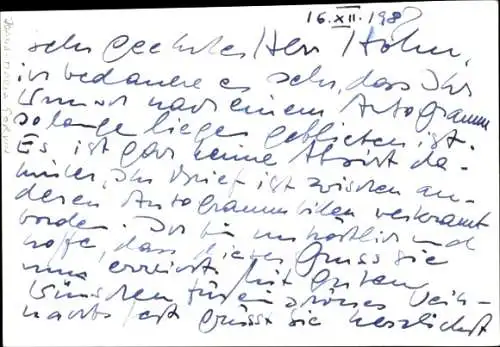 16. XII. 198
Sehr geehrter Herr Höhn,
ich bedaure es sehr, dass Ihr
Wunsch nach einem Autogramm
so lange liegen geblieben ist.
Es ist gar keine Absicht da-
hinter, Ihr Brief ist zwischen an-
deren Autogrammbitten verkramt
worden. Ich bin untröstlich und
hoffe, dass dieser Gruss Sie
nun erreicht. Mit guten
Wünschen für ein schönes Weih-
nachtsfest grüsst Sie herzlichst